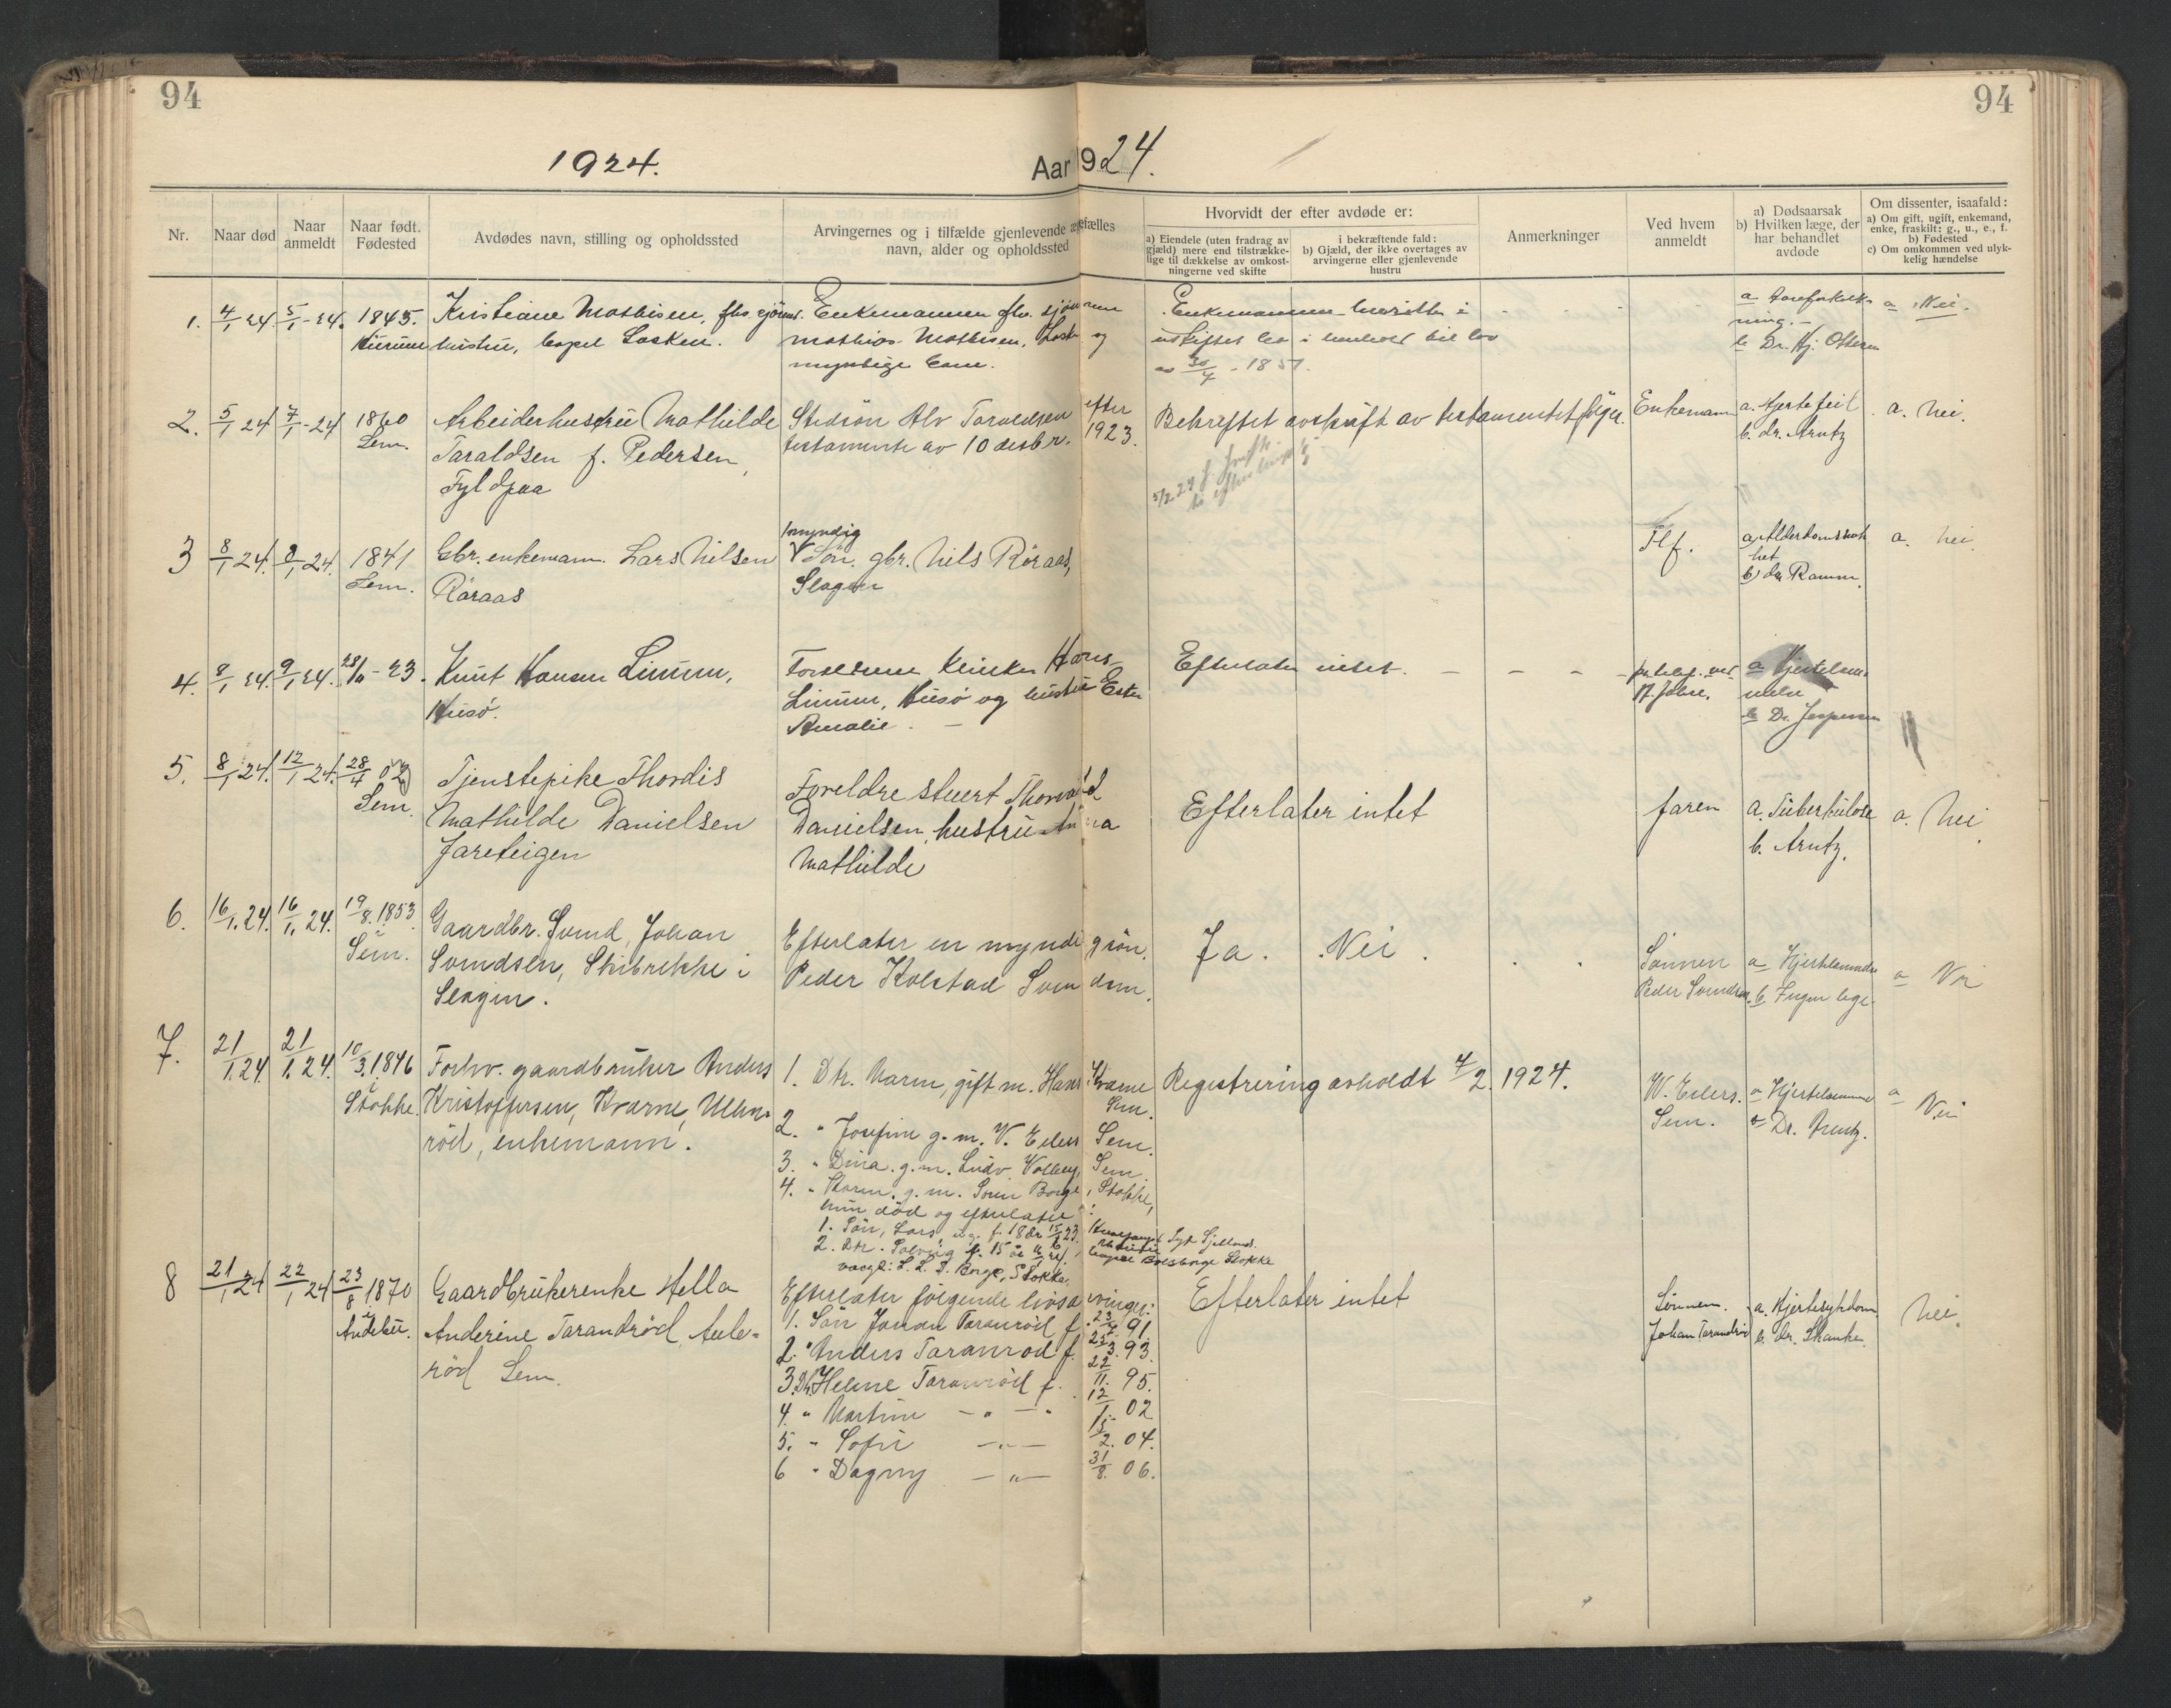 94
94
1924.
Aar 1924.
Nr.
Naar død
Naar anmeldt
Naar født. Fødested
Avdødes navn, stilling og opholdssted
Arvingernes og i tilfælde gjenlevende ægtefælles
navn, alder og opholdssted
Hvorvidt der efter avdøde er:
a) Eiendele (uten fradrag av
gjæld) mere end tilstrække-
lige til dækkelse av omkost-
ningerne ved skifte
i bekræftende fald:
b) Gjæld, der ikke overtages av
arvingerne eller gjenlevende
hustru
Anmerkninger
Ved hvem
anmeldt
a) Dødsaarsak
b) Hvilken læge, der
har behandlet
avdøde
Om dissenter, isaafald:
a) Om gift, ugift, enkemand,
enke, fraskilt: g., u., e., f.
b) Fødested
c) Om omkommen ved ulyk-
kelig hændelse
1. 4/1 24 5/1-24. 1845. Kristiane Mathisen, fhv. sjöm. Enkemannen fhv. sjöm
hustru, Mathias Mathisen, og
myndige barn.
Enkemannen hensitter i
uskiftet bo i henhold til lov
av 30/4-1851.
b Dr. Hj.
a Nei.
2. 5/1 24 7/1-24 1860 Arbeiderhustru Mathilde Stedsön Alv Taraldsen efter
Sem. Taraldsen f. Pedersen, testamente av 10 desbr. 1923.
Fyldpaa
Bekreftet avskrift av testamentet følger. Enkemann a. Hjertefeil a. Nei.
b. dr. Arntz
3 8/1 24. 8/1 24. 1841 Gbr. enkemann Lars Nilsen 1 myndig
Sön, gbr. Nils Röraas,
Sem. Röraas Slagen
Tlf. a. Alderdomssvak a. Nei.
het
b) dr Ramm.
4. 8/1 24. 9/1 24. 28/10-23. Knut Hansen Linnum, Foreldrene Hans
Husö. Linnum, Husö og hustru Ester
Amalie.
Efterlater intet. - - -
b Dr. Jespersen
5. 8/1 24. 12/1 24. 28/4 02 Tjenstepike Thordis Foreldre stuert Thorvald
Sem Mathilde Danielsen Danielsen, hustru Anna
Jareteigen Mathilde
Efterlater intet faren a. Tuberkulose a. Nei
b. Arntz.
6. 16/1. 24. 16/1. 24. 19/8. 1853. Gaardbr. Svend Johan Efterlater en myndig sön.
i Sem. Svendsen, Skibrekke i Peder Kolstad Svendsen.
Slagen.
Ja. Nei. Sönnen
Peder Svendsen. b. Ingen lege a Nei
7. 21/1. 24. 21/1. 24. 10/3. 1846 Forhv. gaardbruker Anders 1. Dtr. Maren, gift m. Hans Kvarne
i Stokke. Kristoffersen, Kvarne, Sem.
röd, enkemann. 2. " Josefine g. m. W. Eilers Sem.
3. " Dina g. m. Ludv. Sem.
4. " Karen, g. m. Sören Borge, Stokke,
hun död og efterlater:
1. Sön, Lars, ug. f. 18 år
2. Dtr. Solveig f. 15 år
verge: L. L. D. Borge, Stokke.
Stokke
Registrering avholdt 4/2. 1924. W. Eilers. a Nei
Sem. b Dr. Arntz.
8 21/1 24 22/1 24 23/8 1870 Gaardbrukerenke Hella Efterlater følgende livsarvinger:
i Andebu. Anderine Tarandröd, Aule- 1. Sön Johan Taranröd f. 23/4 91
röd Sem. 2. " Anders Taranröd f. 25/3. 93.
3. Dtr. Helene Taranröd f. 22/11. 95.
4. " Martine - " - " 12/1. 02
5. " Sofie - " - 15/2. 04.
6 " Dagny - " - 31/8. 06.
Efterlater intet Sönnen. a. Hjertesykdom Nei.
Johan Tarandröd b. dr. Skanke.